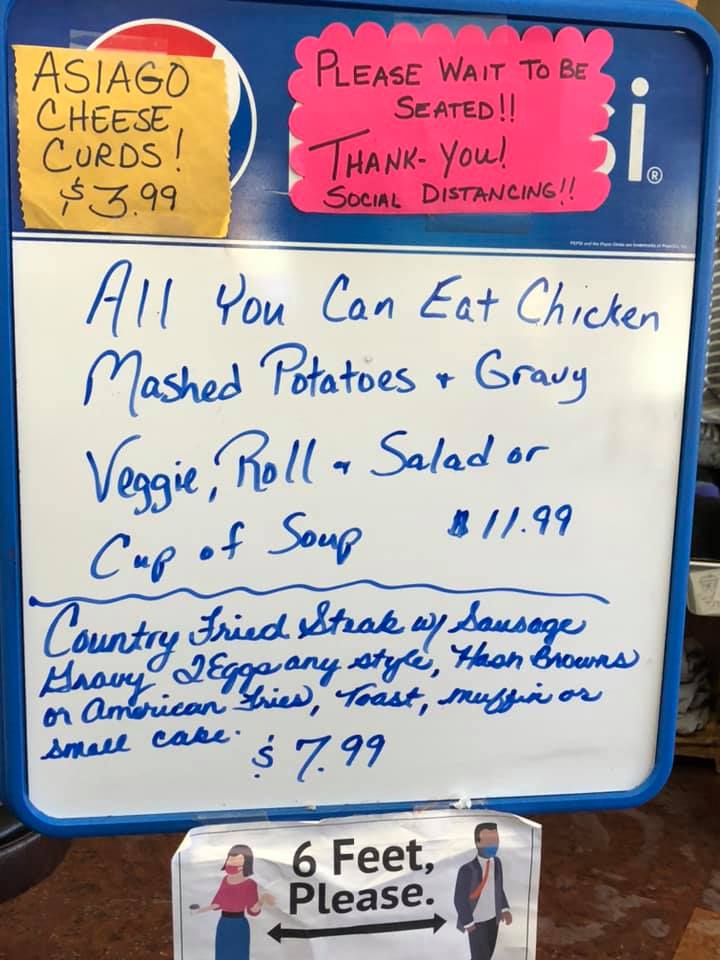 ASIAGO
CHEESE
CURDS!
$3.99
PLEASE WAIT TO BE
SEATED!!
THANK-YOU!
SOCIAL DISTANCING!!
i®
All You Can Eat Chicken
Mashed Potatoes + Gravy
Veggie, Roll + Salad or
Cup of Soup $11.99
Country Fried Steak w/ Sausage
Gravy 2 Eggs any style, Hash Browns
or American Fries, Toast, muffin or
small cake. $7.99
6 Feet,
Please.